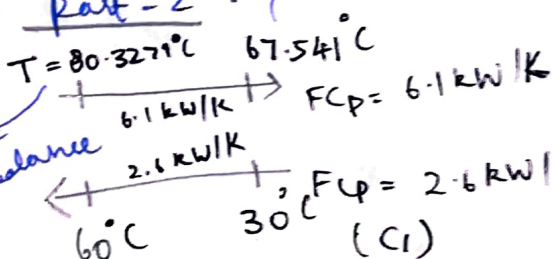 Part - 2
T = 80.3279°C 67.541°C
6.1 kW/K FCp = 6.1 kW/K
balance
2.6 kW/K
FCp = 2.6 kW/
60°C 30°C (C1)